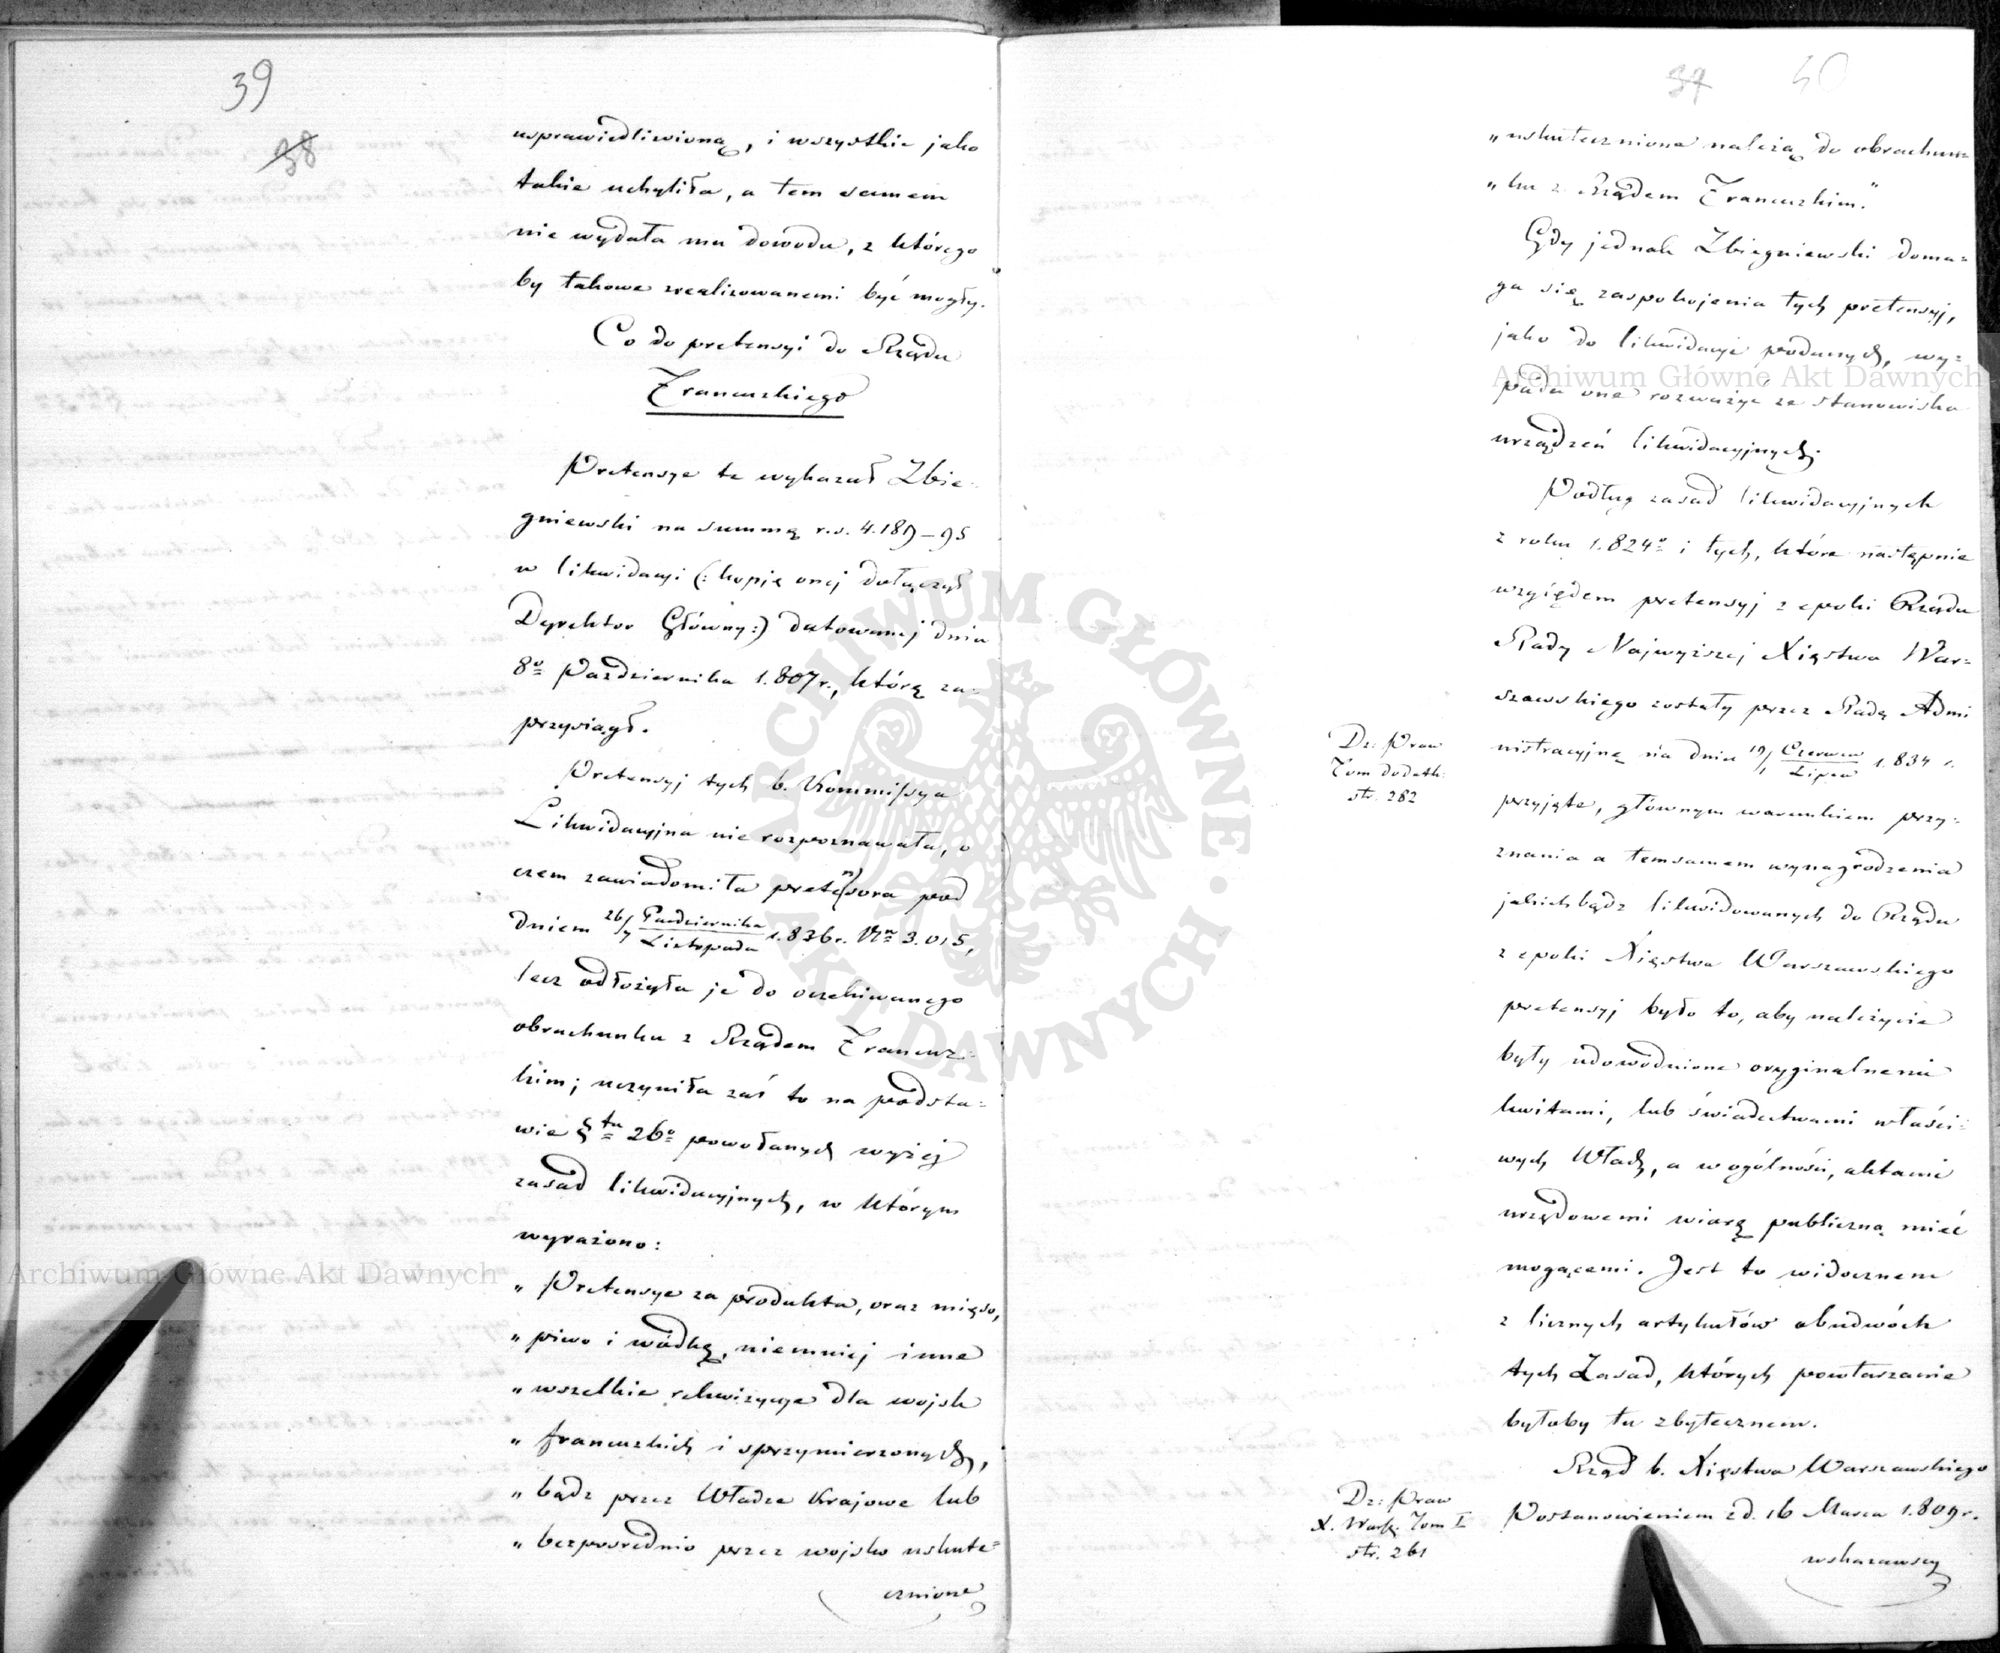 39
38
usprawiedliwioną, i wszystkie jako
takie uchyliła, a tem samem
nie wydała mu dowodu, z którego
by takowe zrealizowanemi być mogły.
Co do pretensyi do Rządu
Francuzkiego
Pretensye te wykazał Zbie-
gniewski na summę r.s. 4.189–95
w likwidacyi (: kopię onej dołączył
Dyrektor Główny:) datowanej dnia
8º Października 1.807 r., którą za-
przysiągł.
Pretensyj tych b. Kommissya
Likwidacyjna nie rozpoznawała, o
czem zawiadomiła pretensora pod
dniem 26/7 Października/Listopada 1.836 r. Nr 3.015,
lecz odłożyła je do oczekiwanego
obrachunku z Rządem Francuz-
kim; uczyniła zaś to na podsta-
wie § tu 26º powołanych wyżej
zasad likwidacyjnych, w którym
wyrażono:
„ Pretensye za produkta, oraz mięso,
„ piwo i wódkę, niemniej inne
„ wszelkie rekwizycye dla wojsk
„ francuzkich i sprzymierzonych,
„ bądź przez Władze Krajowe lub
„ bezpośrednio przez wojsko uskute-
cznione
37 40
„ uskutecznione należą do obrachun-
„ ku z Rządem Francuzkim."
Gdy jednak Zbiegniewski doma-
ga się zaspokojenia tych pretensyj,
jako do likwidacyi podanych, wy-
pada one rozważyć ze stanowiska
urządzeń likwidacyjnych.
Podług zasad likwidacyjnych
z roku 1.824º i tych, które następnie
względem pretensyj z epoki Rządu
Rady Najwyższej Xięstwa War-
szawskiego zostały przez Radę Admi
nistracyjną na dniu 19/1 Czerwca/Lipca 1.834 r.
Dz: Praw
Tom dodatk.
str. 282
przyjęte, głównym warunkiem przy-
znania a temsamem wynagrodzenia
jakichbądź likwidowanych do Rządu
z epoki Xięstwa Warszawskiego
pretensyj było to, aby należycie
były udowodnione oryginalnemi
kwitami, lub świadectwami właści-
wych Władz, a w ogólności, aktami
urzędowemi wiarę publiczną mieć
mogącemi. Jest to widocznem
z licznych artykułów obudwóch
tych Zasad, których powtarzanie
byłoby tu zbytecznem.
Rząd b. Xięstwa Warszawskiego
Postanowieniem z d. 16 Marca 1.809 r.
Dz: Praw
X. Warsz. Tom I
str. 261
wskazawszy
ARCHIWUM GŁÓWNE · AKT DAWNYCH ·
Archiwum Główne Akt Dawnych
Archiwum Główne Akt Dawnych